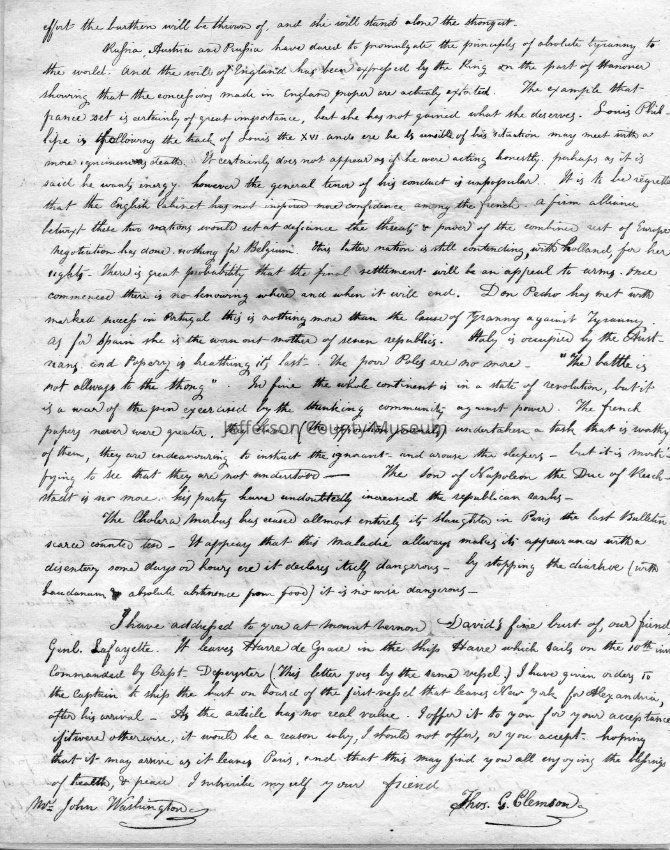 effort the burthen will be thrown of, and she will stand alone the strongest.
Russia, Austria and Prussia have dared to promulgate the principles of absolute tyranny to
the world. And the will of England has been expressed by the King on the part of Hanover
showing that the concessions made in England proper are actualy extorted. The example that
france set is certainly of great importance, but she has not gained what she deserves. Louis Phil-
lipe is following the track of Louis the XVI and ere be is sensible of his situation may meet with a
more ignominious death. It certainly does not appear as if he were acting honestly. perhaps as it is
said he wants energy. however the general tenor of his conduct is unpopular. It is to be regretted
that the English Cabinet has not inspired more confidence among the french. a firm alliance
betwixt these two nations would set at defiance the threats & power of the combined rest of Europe
negotiation has done nothing for Belgium. This latter nation is still contending with holland, for her
rights. There is great probability that the final settlement will be an appeal to arms. once
commenced there is no knowing where and when it will end. Don Pedro has met with
marked success in Portugal this is nothing more than the Cause of Tyranny against Tyranny,
as for Spain she is the worn out mother of seven republics. Italy is occupied by the Aust-
reans, and Popery is breathing its last. The poor Poles are no more - "The battle is
not allways to the strong". In fine the whole continent is in a state of revolution, but it
is a war of the pen excercised by the thinking community against power. The french
papers never were greater, they have (the opposition) undertaken a task that is worthy
of them, they are endeavouring to instruct the ignorant and arouse the sleepers - but it is morti-
fying to see that they are not understood — The son of Napoleon the Duc of Reich-
stadt is no more. his party have undoubtedly increased the republican ranks -
The Cholera Morbus has ceased allmost entirely its slaughter in Paris the last Bulletin
scarce counted two - It appears that this maladie allways makes its appearance with a
desentery some days or hours ere it declares itself dangerous - by stopping the diarhoe (with
Laudanum & absolute abstinence from food) it is no wise dangerous -
I have addressed to you at Mount Vernon, David's fine bust of, our friend
Genl. Lafayette. It leaves Havre de Grace in the Ship Havre which sails on the 10th inst
Commanded by Capt. Depeyster (This letter goes by the same vessel.) I have given orders to
the Captain to ship the bust on board of the first vessel that leaves New York for Alexandria,
after his arrival - As the article has no real value. I offer it to you for your acceptance
if it were otherwise, it would be a reason why, I should not offer, or you accept - hoping
that it may arrive as it leaves Paris, and that this may find you all enjoying the blessings
of health, & peace I subscribe myself your friend
Mr. John Washington Thos. G. Clemson
Jefferson County Museum